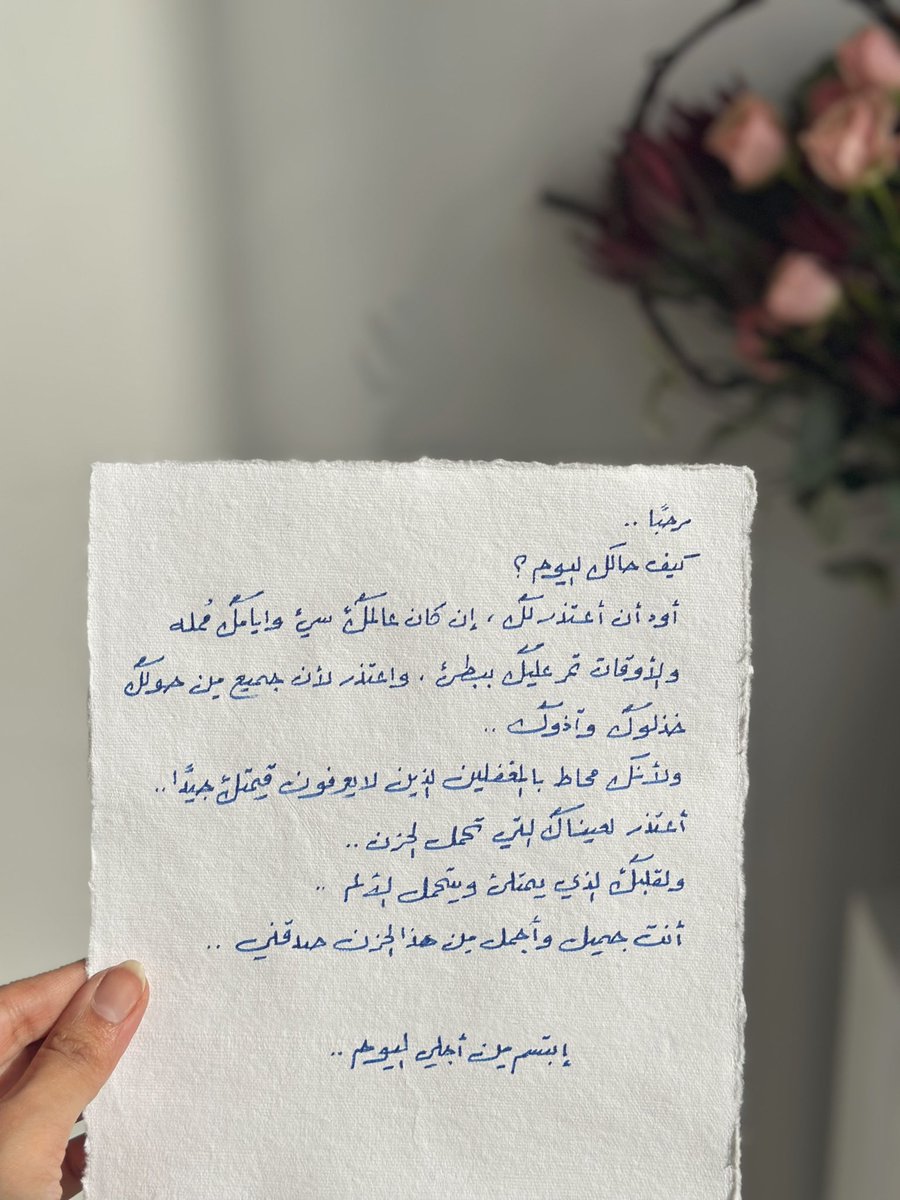 مرحبًا ..
كيف حالك اليوم ؟
أود أن أعتذر لك ، إن كان عالمك سيئ وايامك مُمله
والأوقات تمر عليك ببطئ ، واعتذر لأن جميع من حولك
خذلوك وآذوك ..
ولأنك محاط بالمغفلين الذين لا يعرفون قيمتك جيدًا ..
أعتذر لعيناك التي تحمل الحزن ..
ولقلبك الذي يمتلئ ويتحمل الألم ..
أنت جميل وأجمل من هذا الحزن صدقني ..
إبتسم من أجلي اليوم ..